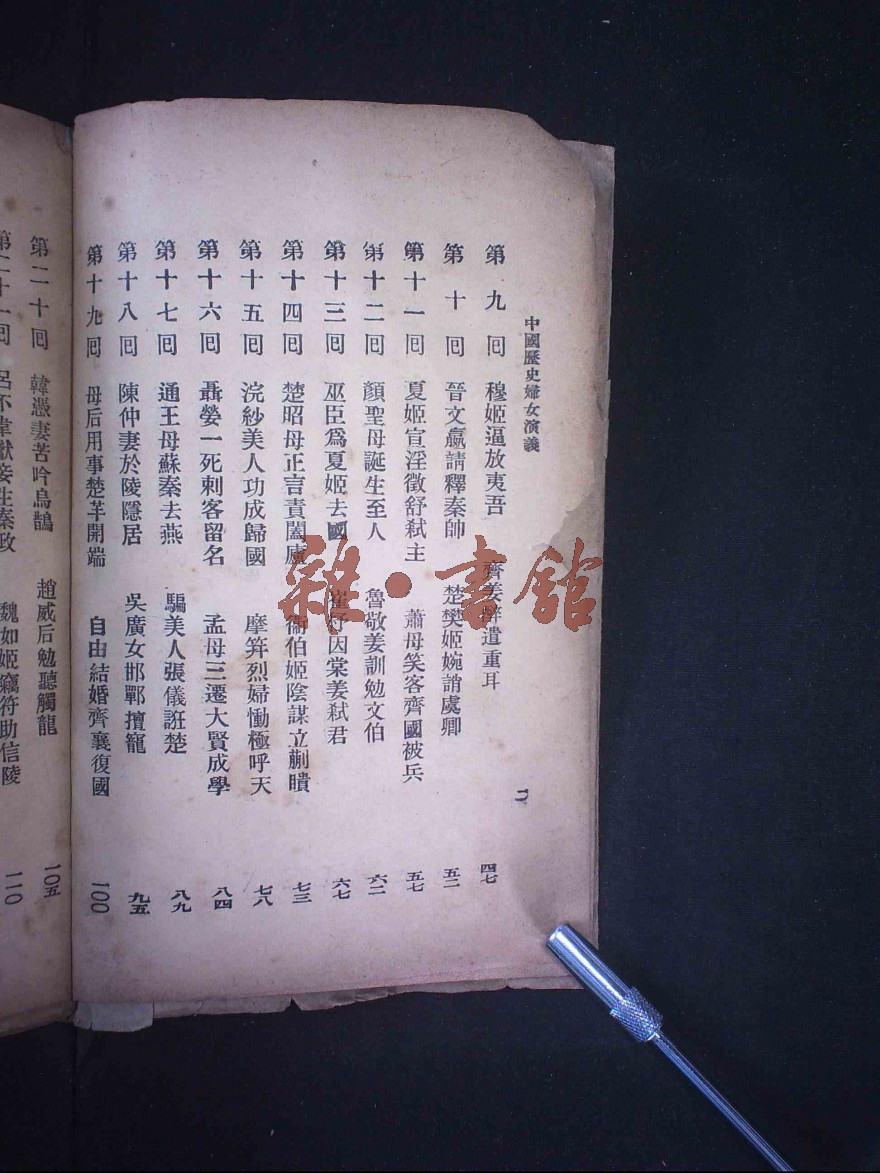 中國歷史婦女演義
第九回 穆姬逼放夷吾 齊姜辭遣重耳 四七
第十回 晉文嬴請釋秦師 楚樊姬婉誚虞卿 五二
第十一回 夏姬宣淫徵舒弒主 蕭母笑客齊國被兵 五七
第十二回 顏聖母誕生至人 魯敬姜訓勉文伯 六二
第十三回 巫臣爲夏姬去國 崔杼因棠姜弒君 六七
第十四回 楚昭母正言責闔廬 衞伯姬陰謀立蒯瞶 七三
第十五回 浣紗美人功成歸國 摩笄烈婦慟極呼天 七八
第十六回 聶嫈一死刺客留名 孟母三遷大賢成學 八四
第十七回 通王母蘇秦去燕 騙美人張儀誑楚 八九
第十八回 陳仲妻於陵隱居 吳廣女邯鄲擅寵 九五
第十九回 母后用事楚羋開端 自由結婚齊襄復國 一〇〇
第二十回 韓憑妻苦吟烏鵲 趙威后勉聽觸龍 一〇五
第二十一回 呂不韋獻妾生秦政 魏如姬竊符助信陵 一一〇
雜·書館